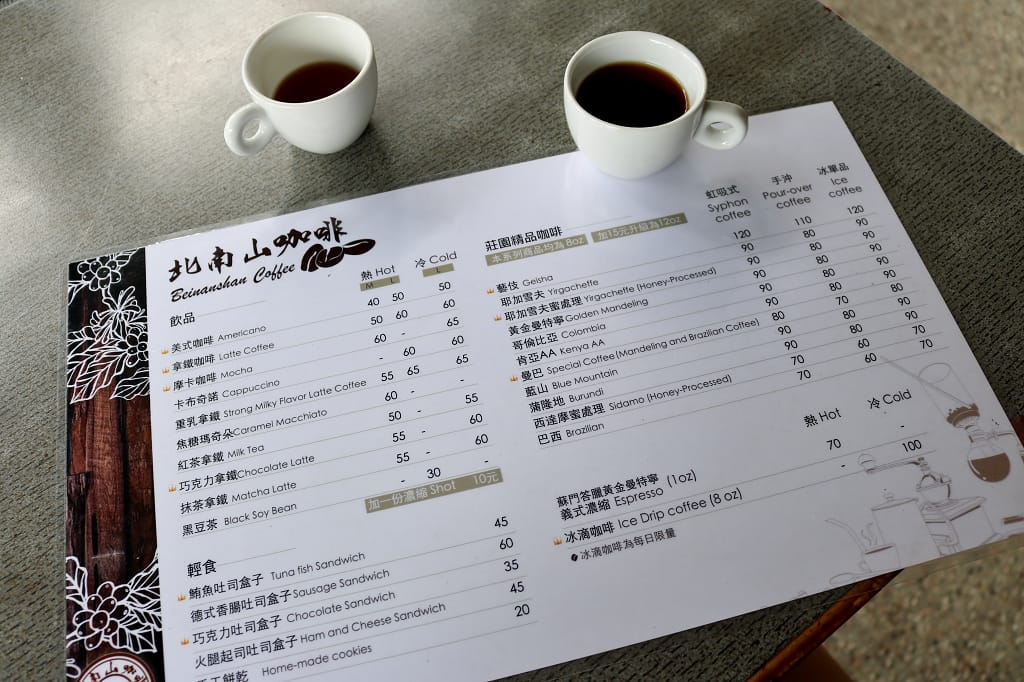 北南山咖啡
Beinanshan Coffee
熱 Hot 冷 Cold
M L L
飲品
美式咖啡 Americano 40 50 50
拿鐵咖啡 Latte Coffee 50 60 60
摩卡咖啡 Mocha 60 - 65
卡布奇諾 Cappuccino - 60 60
重乳拿鐵 Strong Milky Flavor Latte Coffee 55 65 65
焦糖瑪奇朵 Caramel Macchiato 60 - -
紅茶拿鐵 Milk Tea 50 - 55
巧克力拿鐵 Chocolate Latte 55 - 60
抹茶拿鐵 Matcha Latte 55 - 60
黑豆茶 Black Soy Bean - 30 -
加一份濃縮 Shot 10元
輕食
鮪魚吐司盒子 Tuna fish Sandwich 45
德式香腸吐司盒子 Sausage Sandwich 60
巧克力吐司盒子 Chocolate Sandwich 35
火腿起司吐司盒子 Ham and Cheese Sandwich 45
手工餅乾 Home-made cookies 20
南山咖
莊園精品咖啡
本系列商品均為8oz 加15元升級為12oz
虹吸式 Syphon coffee
手沖 Pour-over coffee
冰單品 Ice coffee
藝伎 Geisha 120 110 120
耶加雪夫 Yirgacheffe 90 90 90
耶加雪夫蜜處理 Yirgacheffe (Honey-Processed)
黃金曼特寧 Golden Mandeling
哥倫比亞 Colombia
肯亞AA Kenya AA
曼巴 Special Coffee (Mandeling and Brazilian Coffee)
藍山 Blue Mountain
蒲隆地 Burundi
西達摩蜜處理 Sidamo (Honey-Processed)
巴西 Brazilian
熱 Hot 冷 Cold
蘇門答臘黃金曼特寧
義式濃縮 Espresso (1oz) 70 -
冰滴咖啡 Ice Drip coffee (8 oz) - 100
冰滴咖啡為每日限量